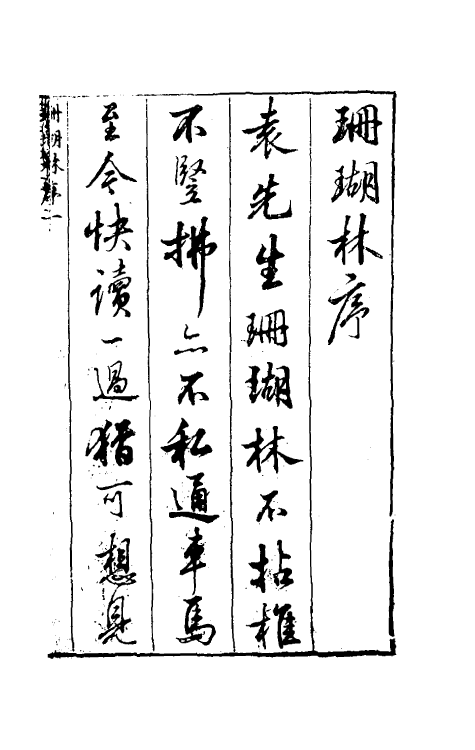 珊瑚林序
袁先生珊瑚林不拈椎
不竪拂亦不私通車馬
至今快讀一過猶可想見
珊瑚林序 一